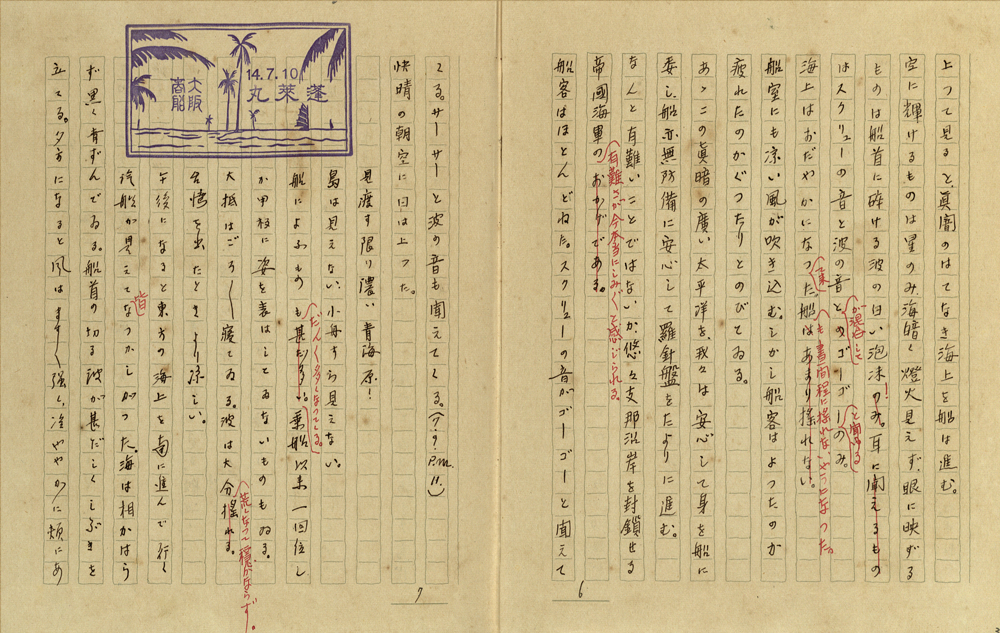 上つて見ると、眞闇のはてなき海上を船は進む。
空に輝けるものは星のみ、海暗く燈火見えず、眼に映ずる
ものは船首に砕ける波の白い泡沫のみ。耳に聞えるもの
!
はスクリューの音と波の音とのゴーゴーのみ。
が混合して
と聞ゆる
海上はおだやかになつた。船はあまり揺れない。
て来
も書間程に揺れないやうになつた。
船室にも凉い風が吹き込む。しかし船客はよつたのか
疲れたのかぐつたりとのびてゐる。
あゝこの眞暗の廣い太平洋を、我々は安心して身を船に
委し、船亦無防備に安心して羅針盤をたよりに進む。
なんと有難いことではないか、悠々支那沿岸を封鎖せる
帝國海軍のおかげである。
有難さが今本当にしみ〲と感じられる。
船客はほとんどねた。スクリューの音がゴーゴーと聞えて
6
くる。サーサーと波の音も聞えてくる。(7.9 P.m. 11.)
快晴の朝空に日は上つた。
見渡す限り濃い青海原!
島は見えない、小舟すら見えない。
船によふものも甚だ多い。乗船以来一回位し
だん〱多くなつてゐる。
か甲板に姿を表はしてゐないものもゐる。
大抵はごろ〱寝てゐる。波は大分揺れる。
荒くなつて穏かならず。
台湾を出たときより凉しい。
午後になると東方の海上を南に進んで行く
汽船が見えてなつかしがつた。海は相かはら
皆
ず黒く青ずんでゐる。船首の切る波が甚だしくしぶきを
立てる。夕方になると風はます〱強く、冷やかに頬にあ
7
大阪商船
14.7.10
蓬莱丸